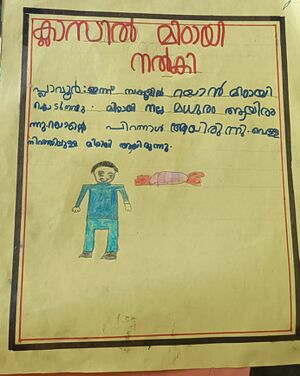 ക്ലാസിൽ മിഠായി
നൽകി
പ്ലാവൂർ: ഇന്ന് സ്കൂളിൽ റയാൻ മിഠായി
മിഠായി നല്ല മധുരം ആയിരു
ന്നു. റയാന്റെ പിറന്നാൾ ആയിരുന്നു. വെള്ള
നിറത്തിലുള്ള മിഠായി ആയിരുന്നു.